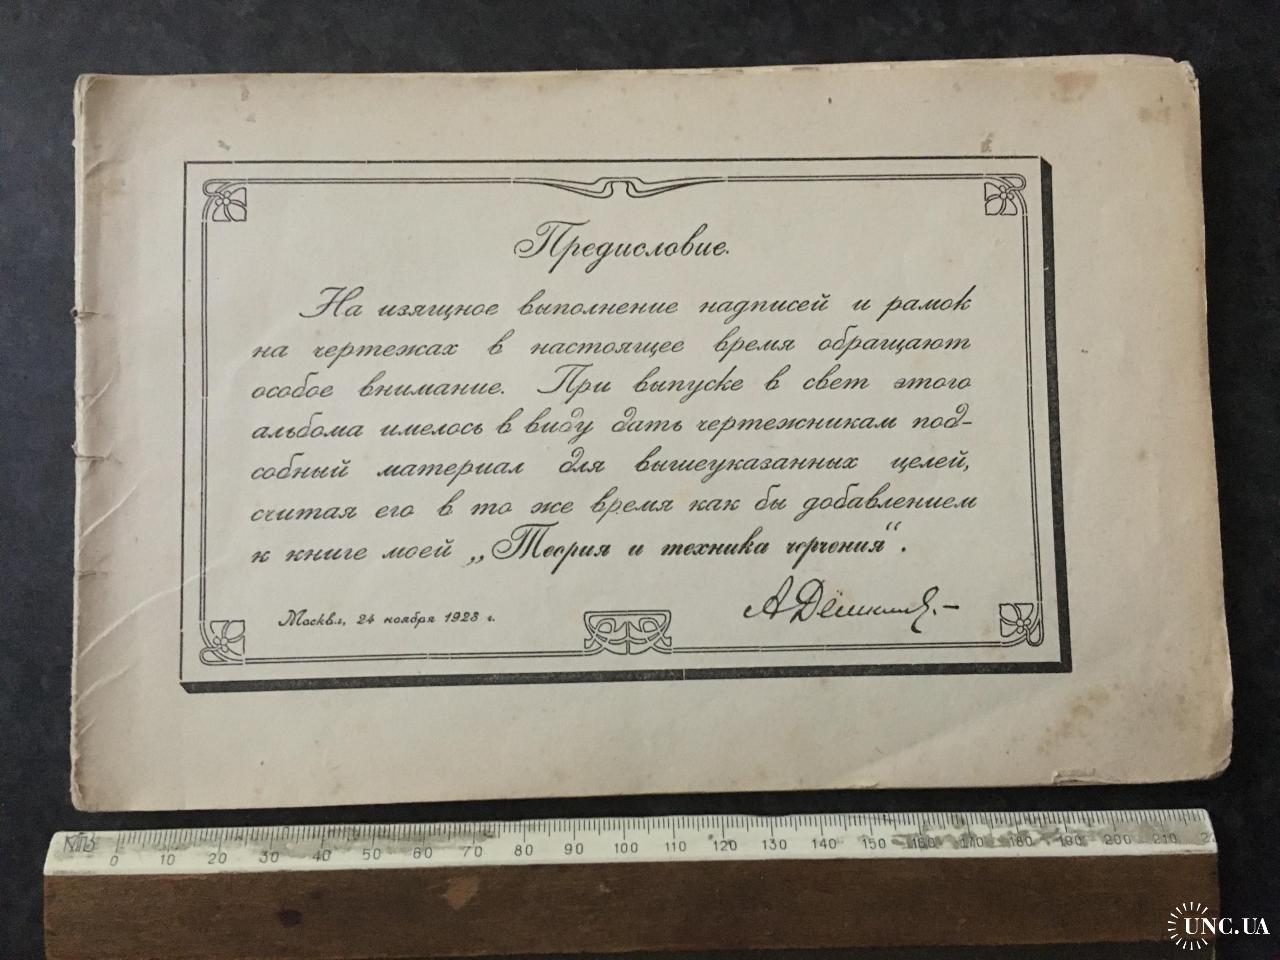 Предисловие.
На изящное выполнение надписей и рамок
на чертежах в настоящее время обращают
особое внимание. При выпуске в свет этого
альбома имелось в виду дать чертежникам под-
собный материал для вышеуказанных целей,
считая его в то же время как бы добавлением
к книге моей „Теория и техника черчения“.
Москва, 24 ноября 1928 г.
0 10 20 30 40 50 60 70 80 90 100 110 120 130 140 150 160 170 180 190 200 210
UNC.UA